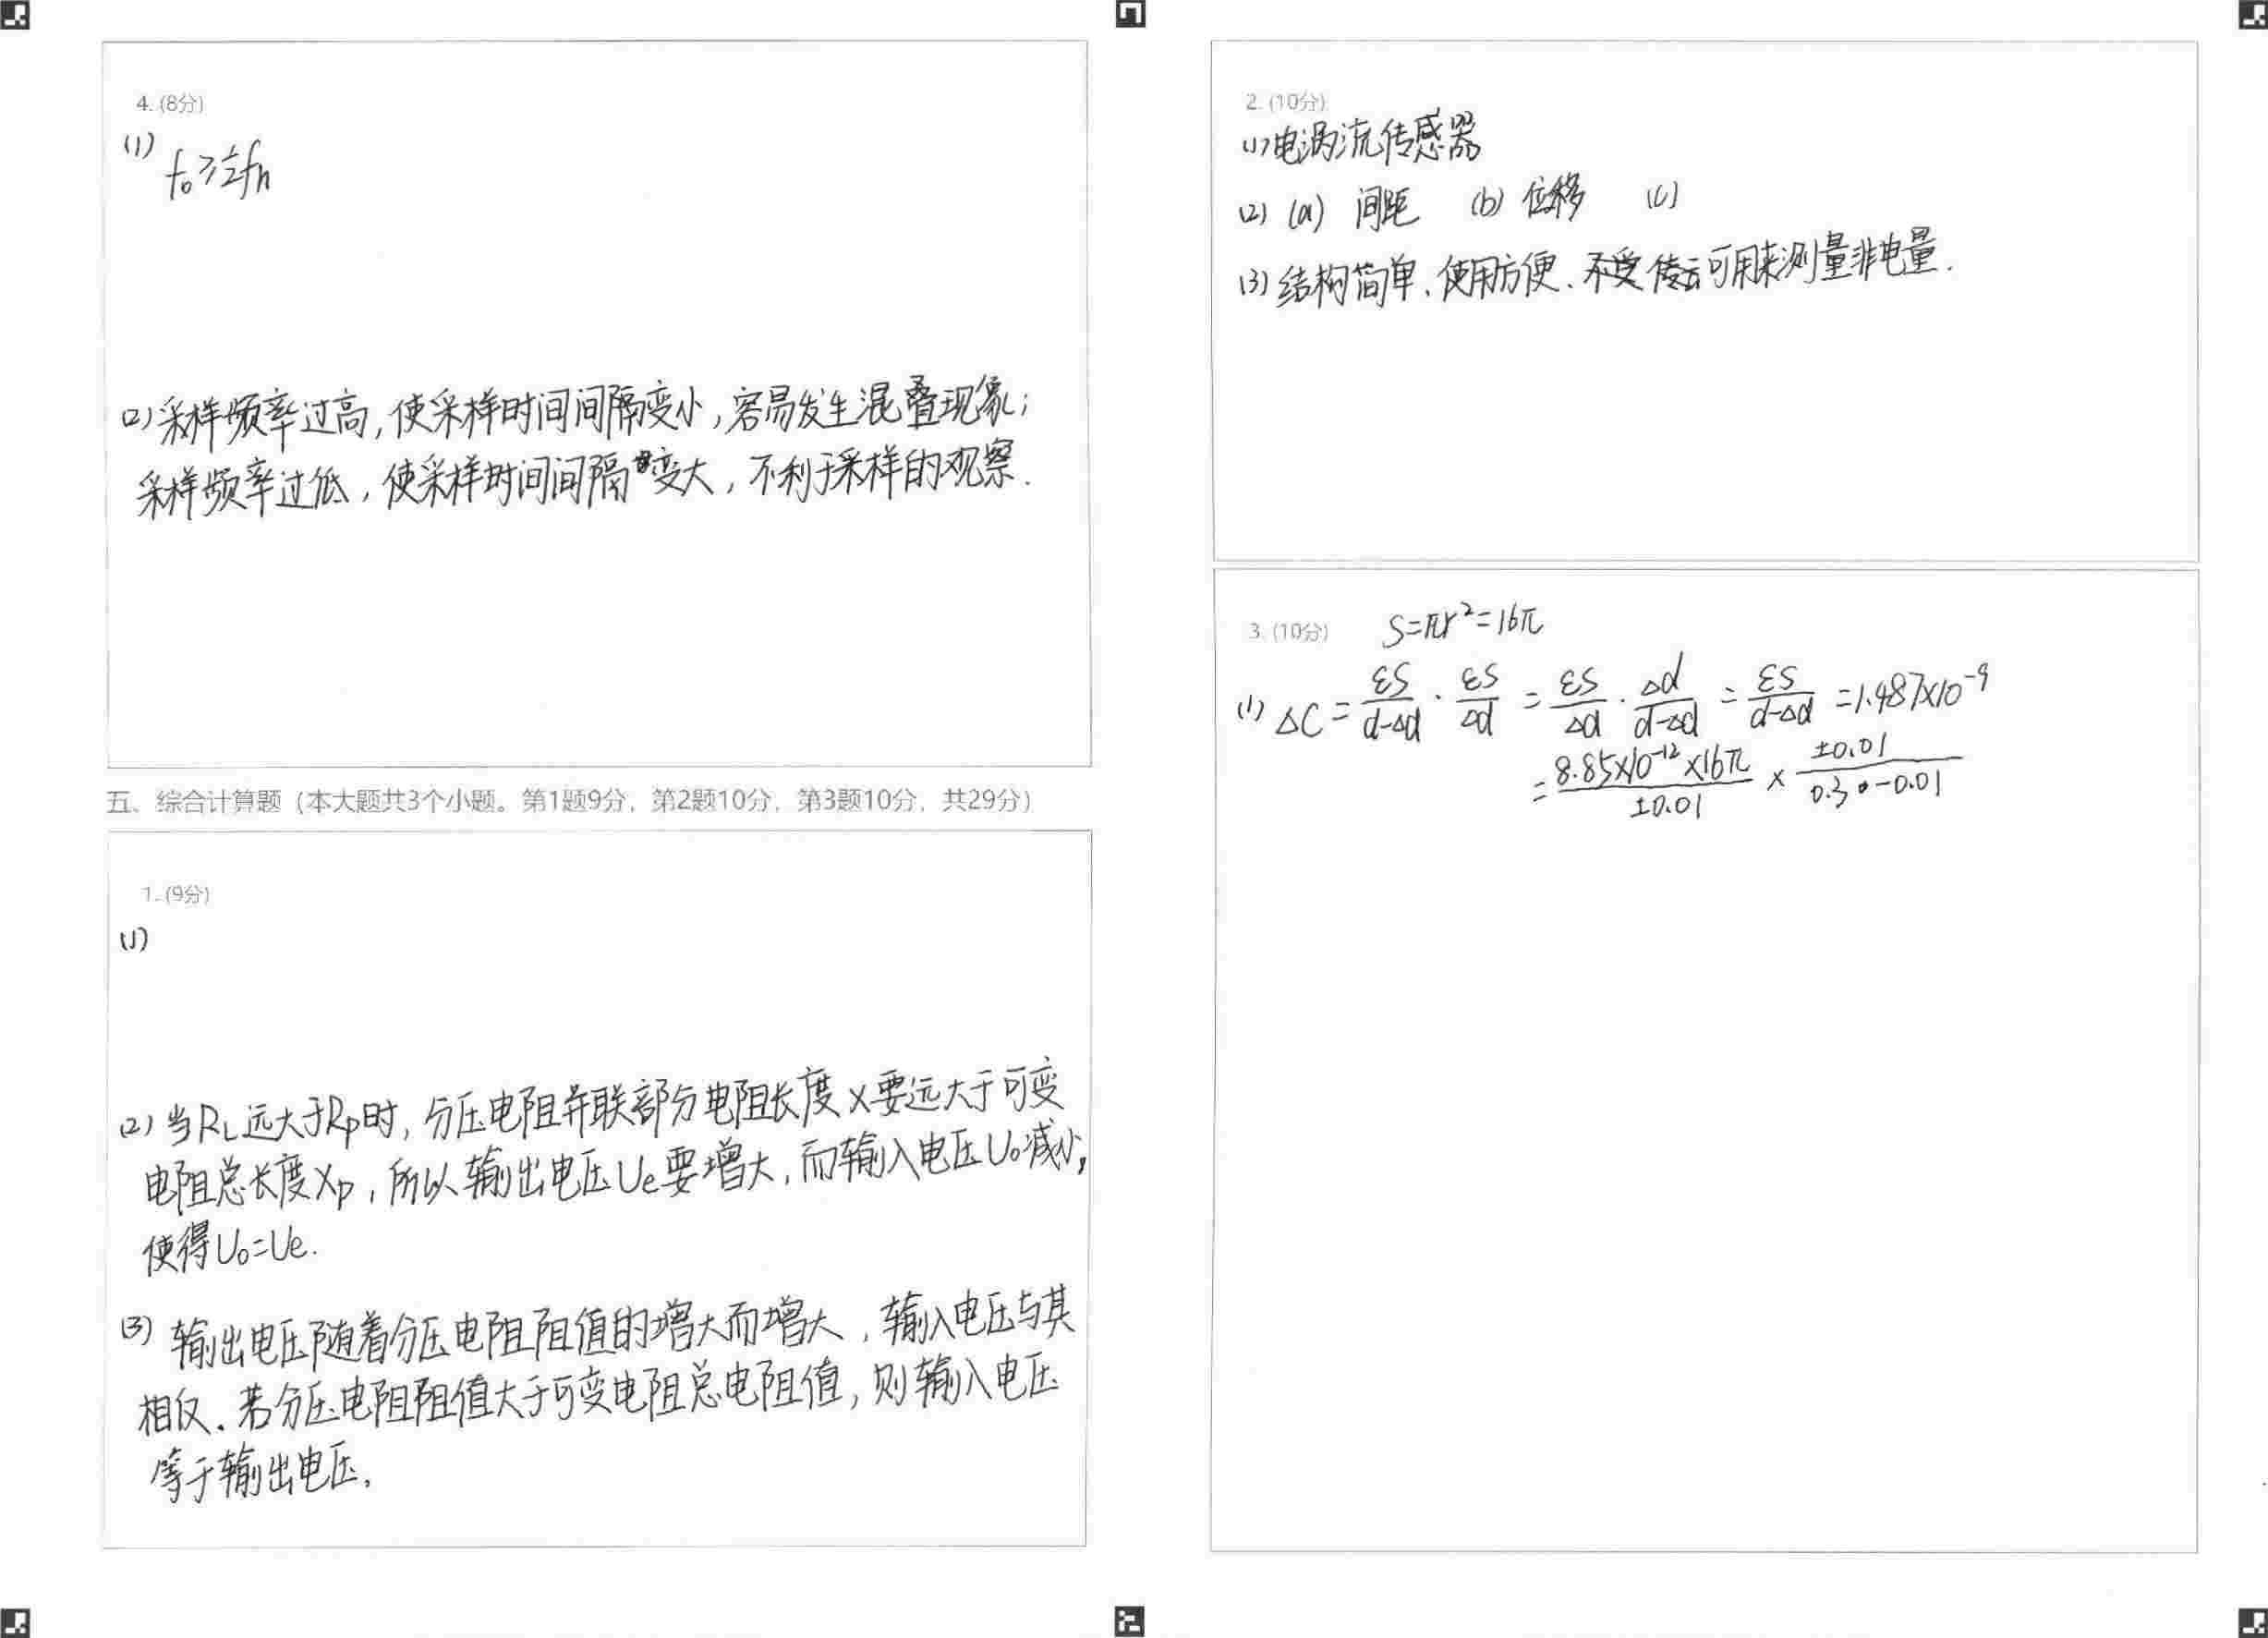 4. (8分)
(1) f₀≥½fₕ
(2) 采样频率过高,使采样时间间隔变小,容易发生混叠现象;
采样频率过低,使采样时间间隔变大,不利于采样的观察.
五、综合计算题(本大题共3个小题。第1题9分,第2题10分,第3题10分,共29分)
1. (9分)
(1)
(2) 当RL远大于Rp时,分压电阻并联部分电阻长度x要远大于可变
电阻总长度Xp,所以输出电压Ue要增大,而输入电压U₀减小,
使得U₀=Ue.
(3) 输出电压随着分压电阻阻值的增大而增大,输入电压与其
相仅.若分压电阻阻值大于可变电阻总电阻值,则输入电压
等于输出电压,
2. (10分)
(1) 电涡流传感器
(2) (a) 间距 (b) 位移 (c)
(3) 结构简单、使用方便、不受 可用来测量非电量.
3. (10分) S=πr²=16π
(1) ΔC = εS/(d-Δd) · εS/Δd = εS/Δd · Δd/(d-Δd) = εS/(d-Δd) =1.487×10⁻⁹
= (8.85×10⁻¹²×16π)/(±0.01) × (±0.01)/(0.30-0.01)